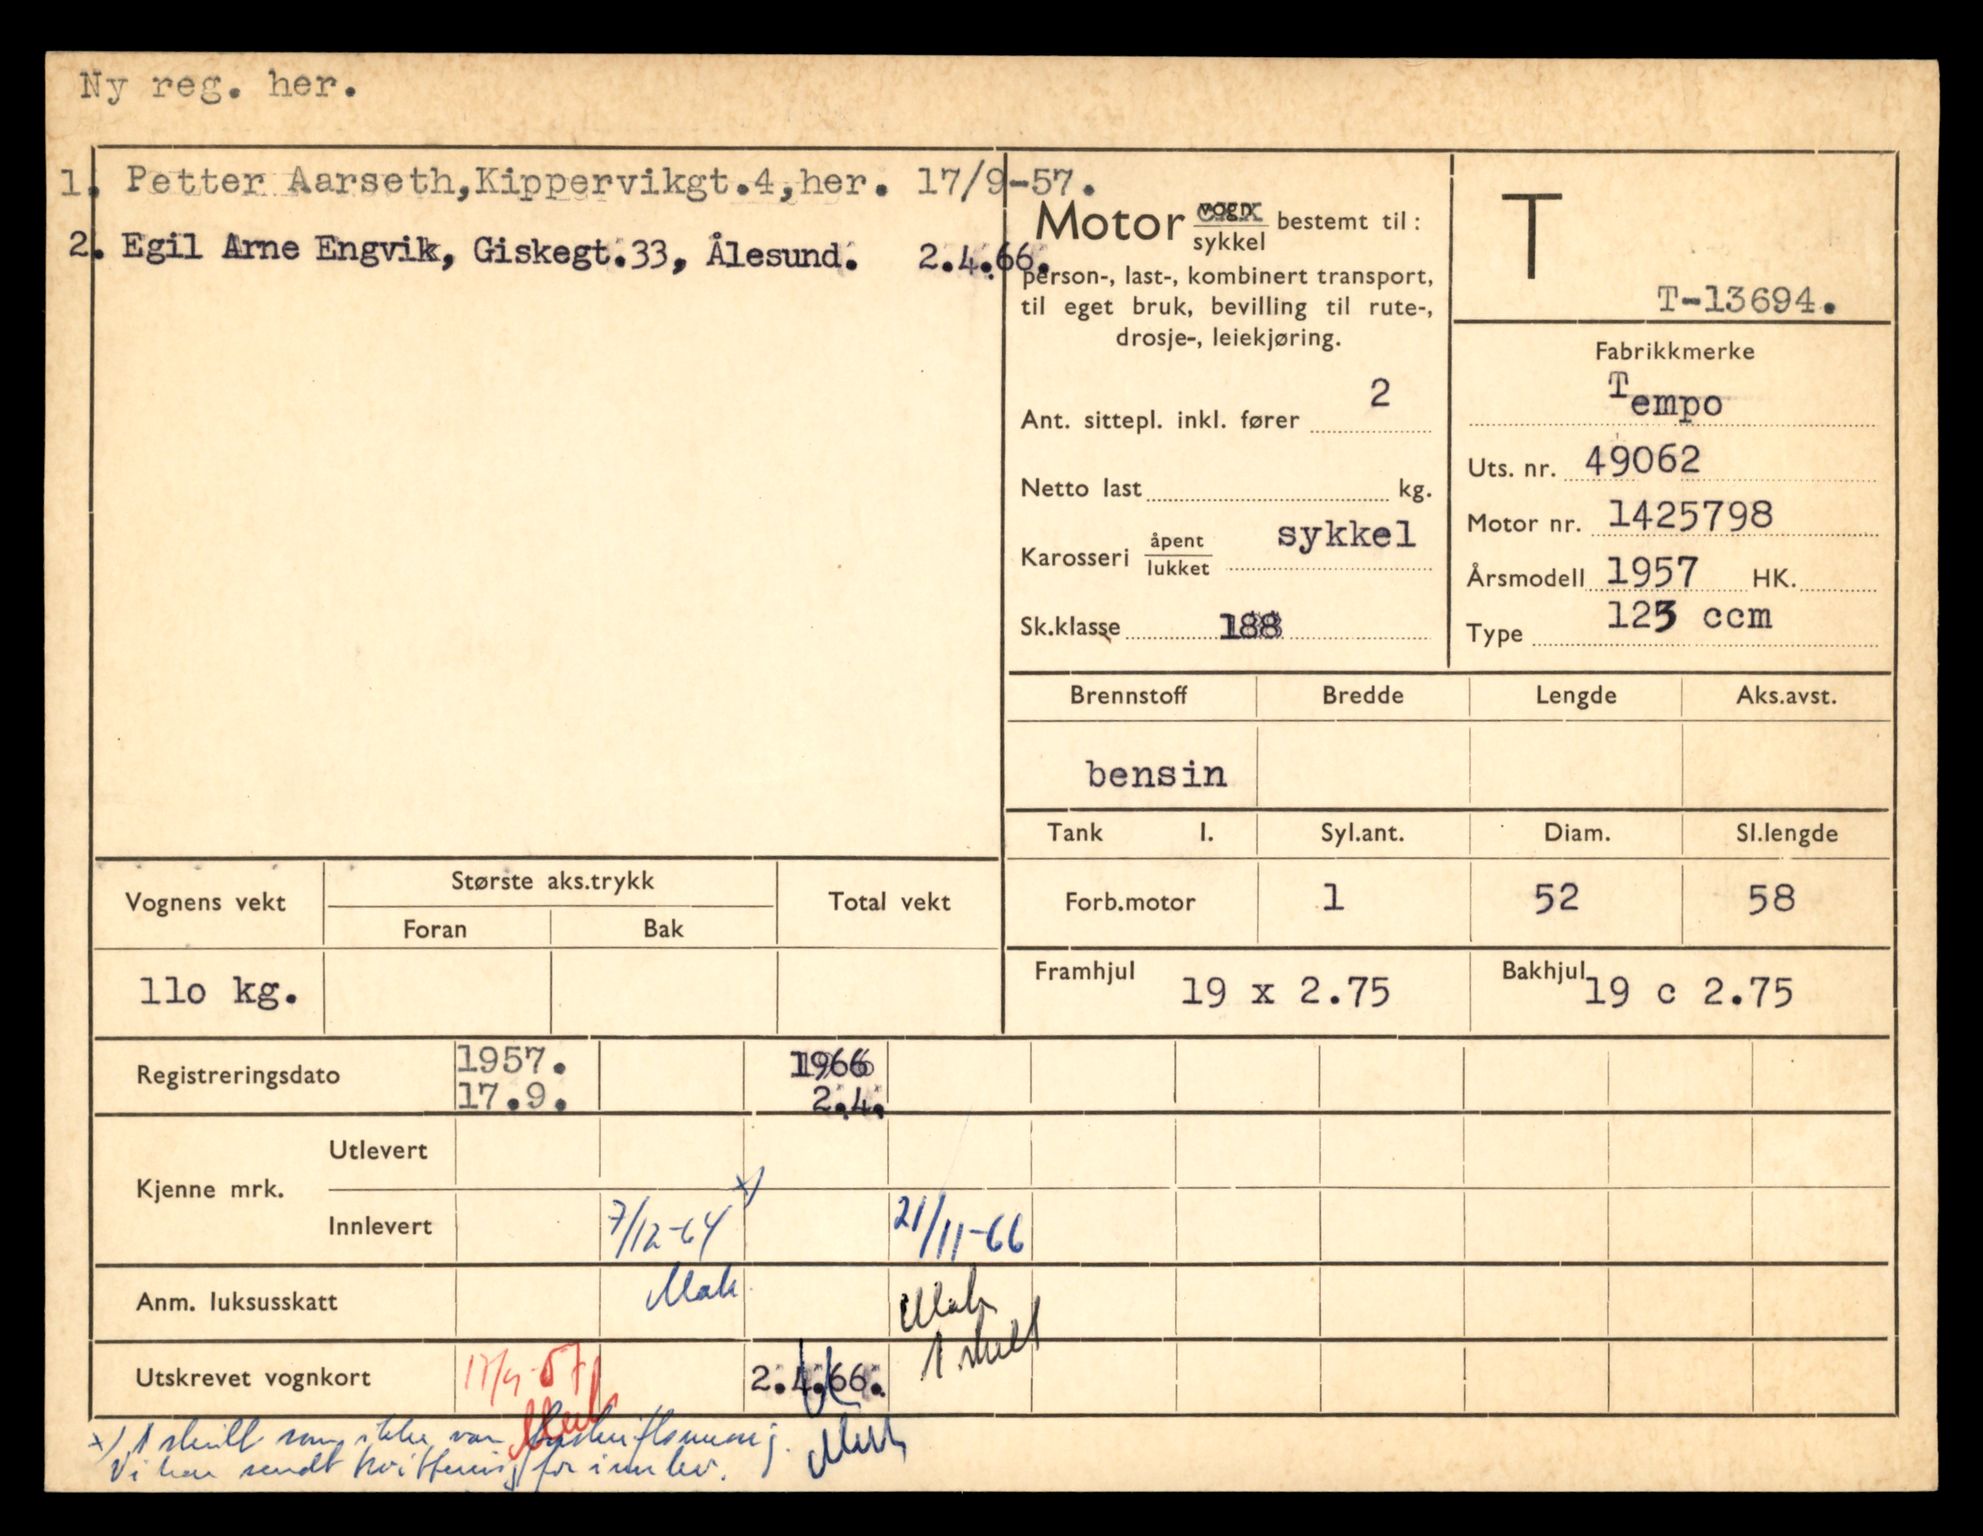 Ny reg. her.
1. Petter Aarseth,Kippervikgt.4,her. 17/9-57.
2. Egil Arne Engvik, Giskegt.33, Ålesund. 2.4.66.
Motor vogn sykkel bestemt til:
person-, last-, kombinert transport,
til eget bruk, bevilling til rute-,
drosje-, leiekjøring.
Ant. sittepl. inkl. fører 2
Netto last kg.
Karosseri åpent lukket sykkel
Sk.klasse 188
T
T-13694.
Fabrikkmerke
Tempo
Uts. nr. 49062
Motor nr. 1425798
Årsmodell 1957 HK.
Type 123 ccm
Brennstoff Bredde Lengde Aks.avst.
bensin
Tank l. Syl.ant. Diam. Sl.lengde
Forb.motor 1 52 58
Framhjul 19 x 2.75 Bakhjul 19 c 2.75
Vognens vekt Største aks.trykk Total vekt
Foran Bak
110 kg.
Registreringsdato 1957. 1966
17.9. 2.4.
Kjenne mrk. Utlevert
Innlevert 7/12-64 x) 21/11-66
Anm. luksusskatt
1 skilt
Utskrevet vognkort 17/9-57 2.4.66.
x) 1 skilt som ikke var forskriftsmessig.
Vi har sendt kvittering for innlev.